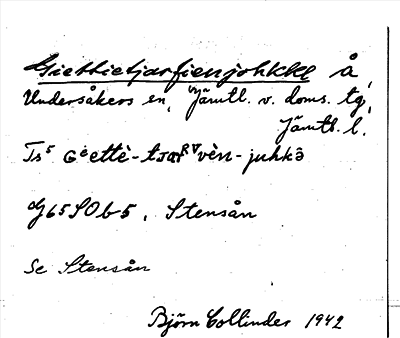 Giettietjarfienjohkke å,
Undersåkers sn, Jämtl. v. doms. tg,
Jämtl. l.
Ts⁵ Gèettè-tjarRVvèn-juhkə̂
J65SOb5, Stensån
Se Stensån
Björn Collinder 1942